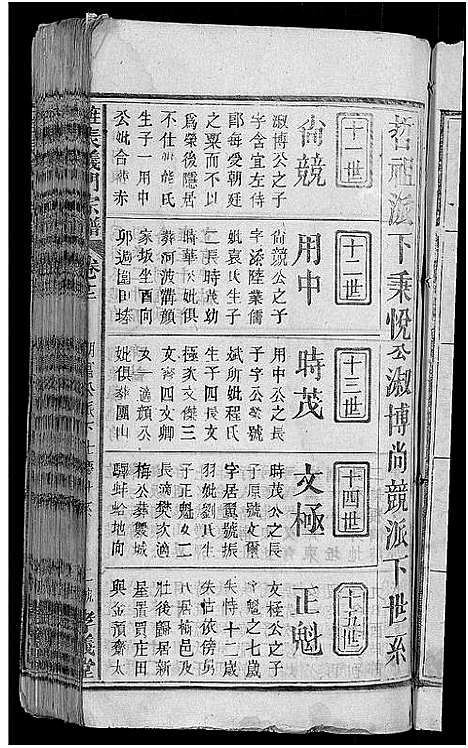 哲祖派下秉悅公淑博尚競派下世系
十一世
尙競
淑博公之子
字含宜左侍
郎每愛朝廷
之粟而不以
爲榮後隱居
不仕妣龍氏
生子一用中
公妣合葬赤
十二世
用中
尙競公之子
字漆陸業儒
妣袁氏生子
二長時茂幼
時華公妣俱
葬河波灣顏
家坂坐酉向
卯過圍田垅
十三世
時茂
用中公之長
子字公奠號
斌所妣程氏
生子四長文
極次文傑三
文富四文卿
女一適顏公
妣俱葬團山
十四世
文極
時茂公之長
子原號文憲
字居翼號振
羽妣劉氏生
子正魁女二
長適樊次適
梅公葬縣城
驛蚌蛤地向
十五世
正魁
文極公之子
文魁之七歲
失恃十二歲
失怙依傍舅
人居楠邑及
壯後歸居新
屋置買庄田
與金預齊太
義門宗譜
卷之
孝義堂